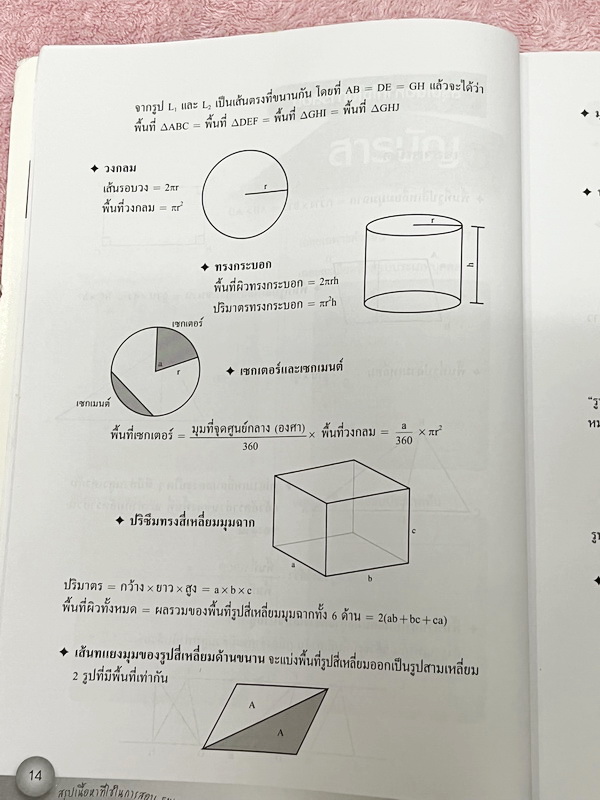 จากรูป L₁ และ L₂ เป็นเส้นตรงที่ขนานกัน โดยที่ AB = DE = GH แล้วจะได้ว่า
พื้นที่ ΔABC = พื้นที่ ΔDEF = พื้นที่ ΔGHI = พื้นที่ ΔGHJ
✦ วงกลม
เส้นรอบวง = 2πr
พื้นที่วงกลม = πr²
r
r
h
✦ ทรงกระบอก
พื้นที่ผิวทรงกระบอก = 2πrh
ปริมาตรทรงกระบอก = πr²h
เซกเตอร์
a
r
เซกเมนต์
✦ เซกเตอร์และเซกเมนต์
พื้นที่เซกเตอร์ = มุมที่จุดศูนย์กลาง (องศา)/360 × พื้นที่วงกลม = a/360 × πr²
✦ ปริซึมทรงสี่เหลี่ยมมุมฉาก
c
a
b
ปริมาตร = กว้าง × ยาว × สูง = a × b × c
พื้นที่ผิวทั้งหมด = ผลรวมของพื้นที่รูปสี่เหลี่ยมมุมฉากทั้ง 6 ด้าน = 2(ab + bc + ca)
✦ เส้นทแยงมุมของรูปสี่เหลี่ยมด้านขนาน จะแบ่งพื้นที่รูปสี่เหลี่ยมออกเป็นรูปสามเหลี่ยม
2 รูปที่มีพื้นที่เท่ากัน
A
A
14
สรุปเนื้อหาที่ใช้ในการสอบ